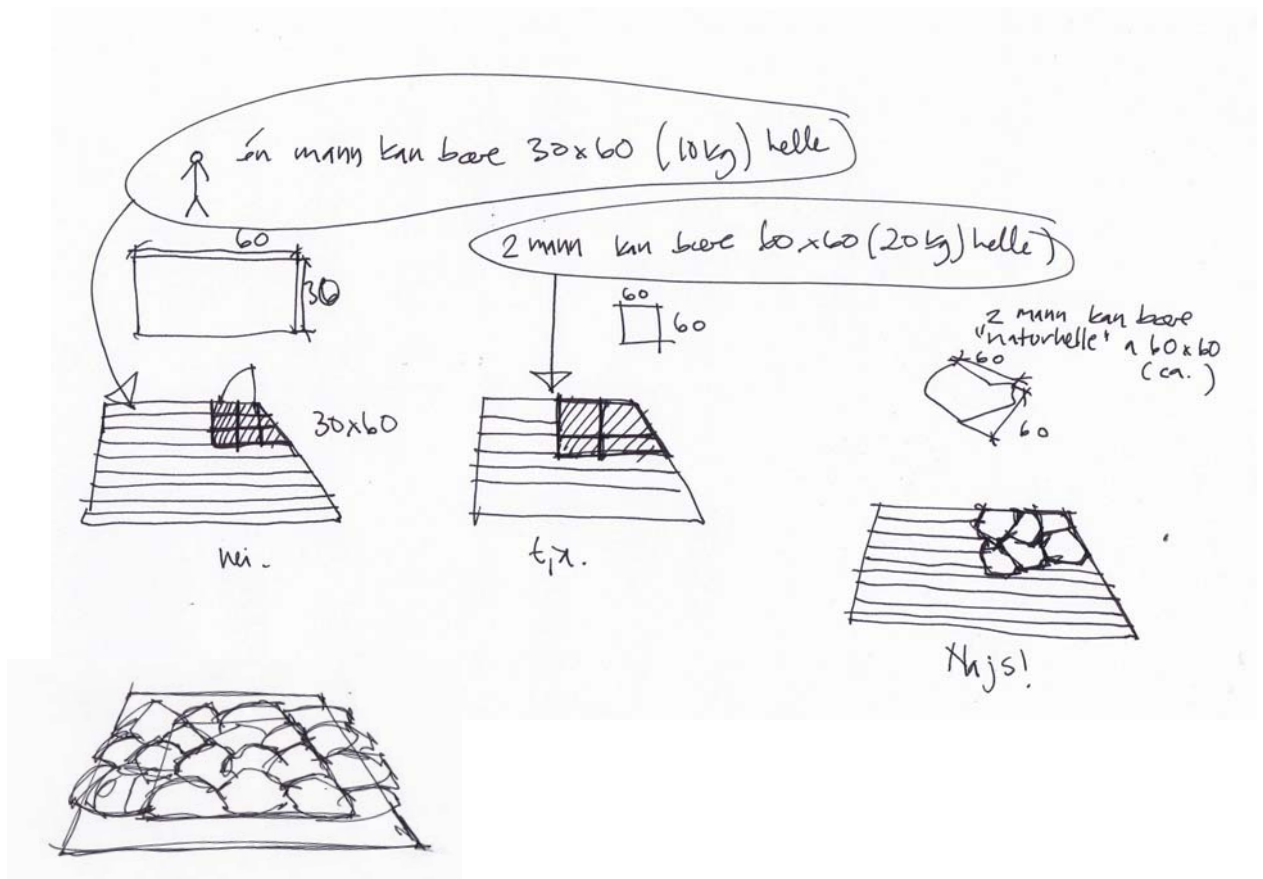 én mann kan bære 30x60 (10kg) helle
60
30
2 mann kan bære 60x60 (20kg) helle)
60
60
2 mann kan bære
"naturhelle" a 60x60
(ca.)
60
60
30x60
nei.
Najs!